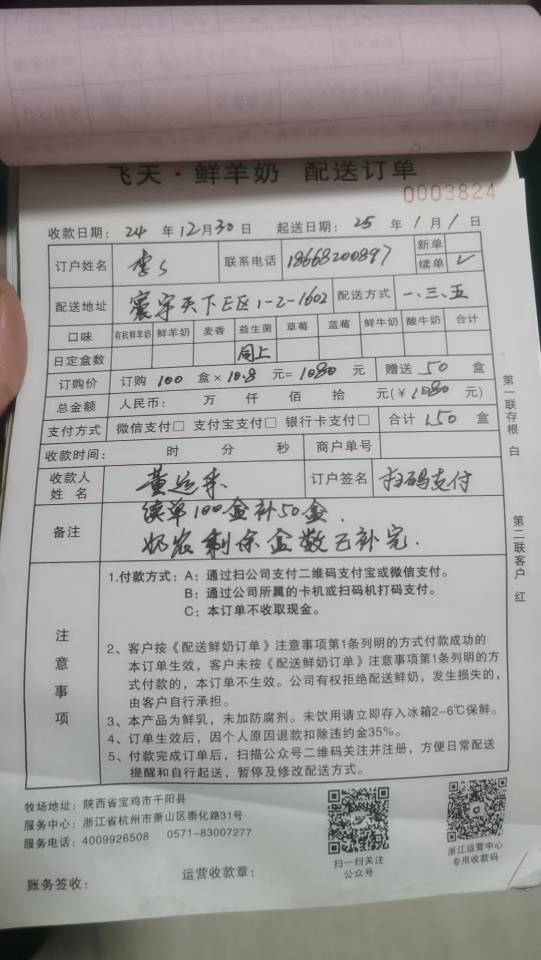 飞天·鲜羊奶 配送订单
0003824
收款日期：24 年 12 月 30 日 起送日期：25 年 1 月 1 日
订户姓名 李 联系电话 18668200897 新单
续单 ✓
配送地址 寰宇天下E区1-2-1602 配送方式 一、三、五
口味 有机鲜羊奶 鲜羊奶 麦香 益生菌 草莓 蓝莓 鲜牛奶 酸牛奶 合计
日定盒数 同上
订购价 订购 100 盒 × 10.8 元= 1080 元 赠送 50 盒
总金额 人民币： 万 仟 佰 拾 元(￥ 1080 元)
支付方式 微信支付□ 支付宝支付□ 银行卡支付□ 合计 150 盒
收款时间： 时 分 秒 商户单号
收款人姓名 黄运来 订户签名 扫码支付
续单100盒补50盒.
备注
奶农剩余盒数已补完.
第一联存根 白
第二联客户 红
注意事项
1.付款方式：A：通过扫公司支付二维码支付宝或微信支付。
B：通过公司所属的卡机或扫码机打码支付。
C：本订单不收取现金。
2、客户按《配送鲜奶订单》注意事项第1条列明的方式付款成功的
本订单生效，客户未按《配送鲜奶订单》注意事项第1条列明的方
式付款的，本订单不生效。公司有权拒绝配送鲜奶，发生损失的，
由客户自行承担。
3、本产品为鲜乳，未加防腐剂。未饮用请立即存入冰箱2-6℃保鲜。
4、订单生效后，因个人原因退款扣除违约金35%。
5、付款完成订单后，扫描公众号二维码关注并注册，方便日常配送
提醒和自行起送，暂停及修改配送方式。
牧场地址：陕西省宝鸡市千阳县
服务中心：浙江省杭州市萧山区崇化路31号
服务电话：4009926508 0571-83007277
扫一扫关注
公众号
浙江运营中心
专用收款码
账务签收： 运营收款章：